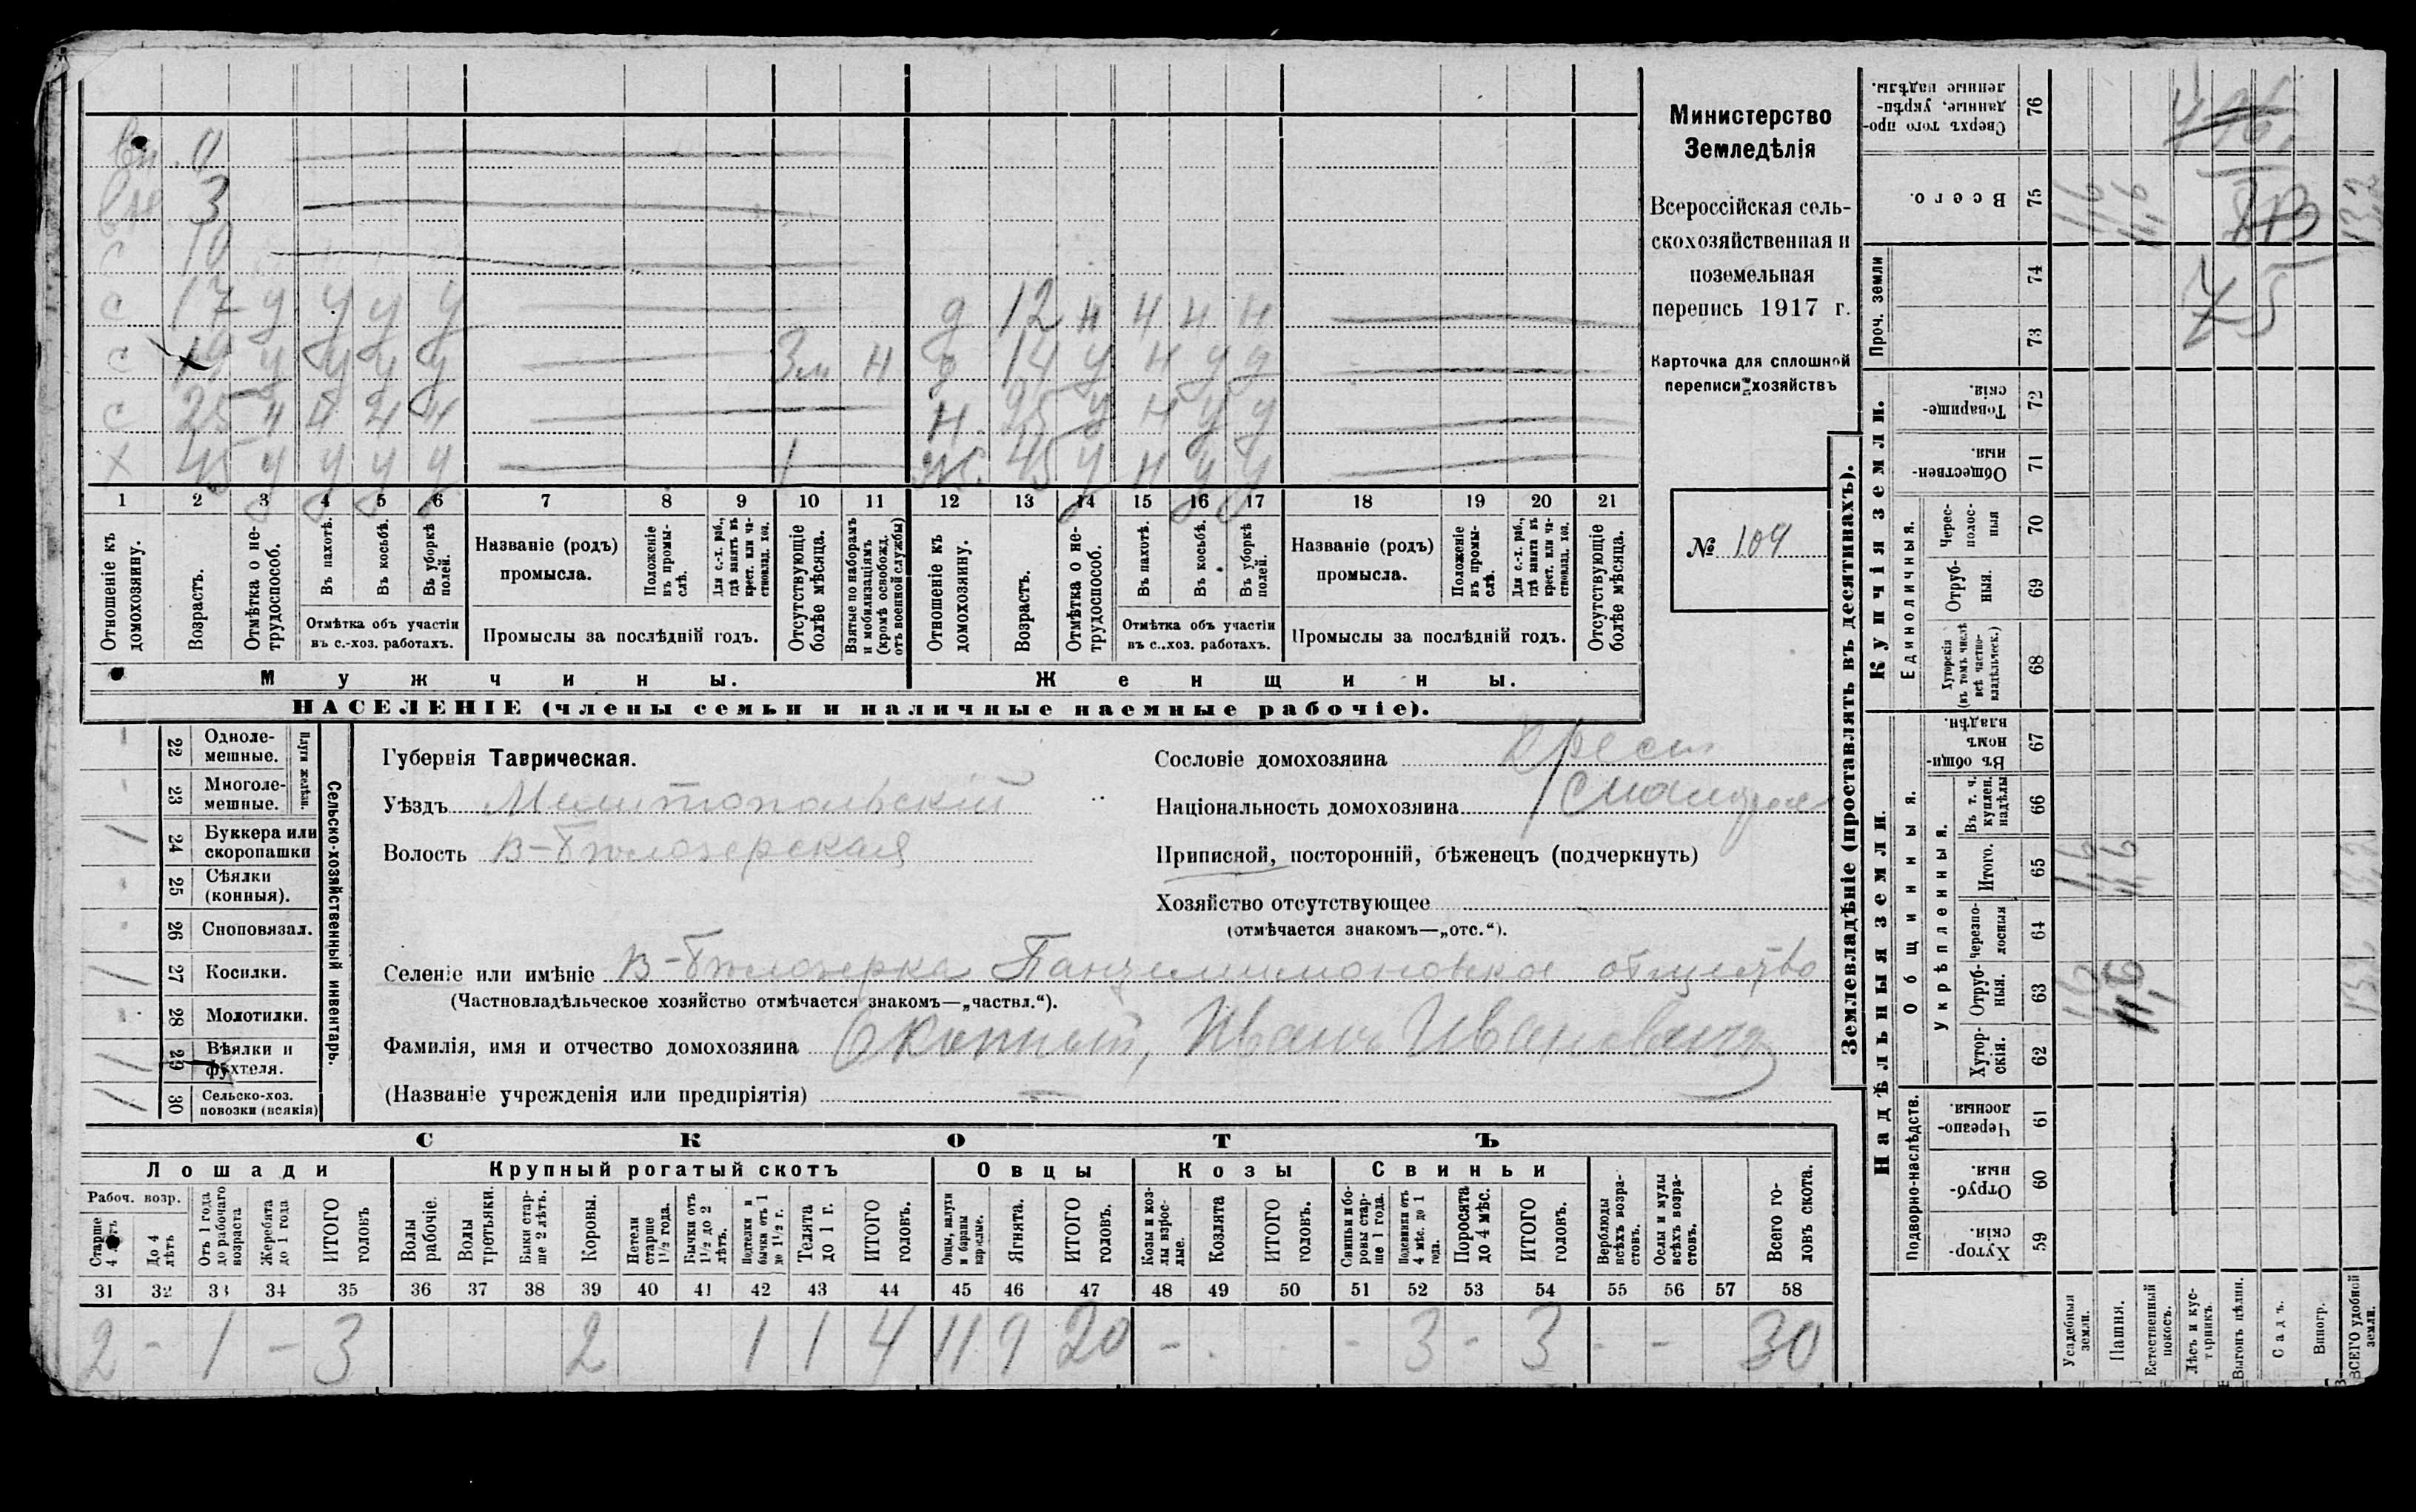 вн. 0
вне 3
с 10
с 17 у у у у д 12 н н н н
с 19 у у у у 3м н д 14 у н у у
с 25 н н н н н. 25 у н у у
х 45 у у у у 1 ж. 45 у н у у
1 2 3 4 5 6 7 8 9 10 11 12 13 14 15 16 17 18 19 20 21
Отношеніе къ домохозяину.
Возрастъ.
Отмѣтка о нетрудоспособ.
Въ пахотѣ.
Въ косьбѣ.
Въ уборкѣ полей.
Отмѣтка объ участіи
въ с.-хоз. работахъ.
Названіе (родъ)
промысла.
Положеніе въ промыслѣ.
Для с.-х. раб., гдѣ занятъ въ крест. или частновлад. хоз.
Промыслы за послѣдній годъ.
Отсутствующіе болѣе мѣсяца.
Взятые по наборамъ и мобилизаціямъ (кромѣ освобожд. отъ военной службы)
Отношеніе къ домохозяину.
Возрастъ.
Отмѣтка о нетрудоспособ.
Въ пахотѣ.
Въ косьбѣ.
Въ уборкѣ полей.
Отмѣтка объ участіи
въ с.-хоз. работахъ.
Названіе (родъ)
промысла.
Положеніе въ промыслѣ.
Для с.-х. раб., гдѣ занята въ крест. или частновлад. хоз.
Промыслы за послѣдній годъ.
Отсутствующіе болѣе мѣсяца.
Мужчины. Женщины.
НАСЕЛЕНІЕ (члены семьи и наличные наемные рабочіе).
Министерство
Земледѣлія
Всероссійская сель-
скохозяйственная и
поземельная
перепись 1917 г.
Карточка для сплошной
переписи хозяйствъ
№ 104
Сельско-хозяйственный инвентарь.
Плуги желѣзн.
- 22 Одноле-
мешные.
- 23 Многоле-
мешные.
1 24 Буккера или
скоропашки
- 25 Сѣялки
(конныя).
- 26 Сноповязал.
1 27 Косилки.
- 28 Молотилки.
1 29 Вѣялки и
фухтеля.
1 30 Сельско-хоз.
повозки (всякія)
Губернія Таврическая.
Уѣздъ Мелитопольскій
Волость В-Бѣлозерская
Сословіе домохозяина Крест
Національность домохозяина
Приписной, посторонній, бѣженецъ (подчеркнуть)
Хозяйство отсутствующее
(отмѣчается знакомъ—„отс.“).
Селеніе или имѣніе В-Бѣлозерка Пантелимоновское общество
(Частновладѣльческое хозяйство отмѣчается знакомъ—„частвл.“).
Фамилія, имя и отчество домохозяина Скопный, Иванъ Ивановичъ
(Названіе учрежденія или предпріятія)
СКОТЪ
Лошади Крупный рогатый скотъ Овцы Козы Свиньи
Рабоч. возр.
Старше 4 лѣтъ
До 4 лѣтъ
Отъ 1 года до рабочаго возраста
Жеребята до 1 года
ИТОГО головъ
Волы рабочіе.
Волы третьяки.
Быки старше 2 лѣтъ.
Коровы.
Нетели старше 1½ года.
Бычки отъ 1½ до 2 лѣтъ.
Подтелки и бычки отъ 1 до 1½ г.
Телята до 1 г.
ИТОГО головъ.
Овцы, валухи и бараны взрослые.
Ягнята.
ИТОГО головъ.
Козы и козлы взрослые.
Козлята
ИТОГО головъ.
Свиньи и боровы старше 1 года.
Подсвинки отъ 4 мѣс. до 1 года.
Поросята до 4 мѣс.
ИТОГО головъ.
Верблюды всѣхъ возрастовъ.
Ослы и мулы всѣхъ возрастовъ.
Всего головъ скота.
31 32 33 34 35 36 37 38 39 40 41 42 43 44 45 46 47 48 49 50 51 52 53 54 55 56 57 58
2 - 1 - 3 2 1 1 4 11 9 20 - - 3 - 3 - - 30
Землевладѣніе (проставлять въ десятинахъ).
Надѣльныя земли.
Подворно-наслѣдств.
Хутор-
скія. 59
Отруб-
ныя. 60
Черезпо-
лосныя. 61
Общинныя.
Укрѣпленныя.
Хутор-
скія. 62
Отруб-
ныя. 63
Черезпо-
лосныя 64
Итого. 65
Въ т. ч. куплен. надѣлы 66
Въ общин-
номъ
владѣн. 67
Купчія земли.
Единоличныя.
Хуторскія (въ томъ числѣ всѣ частновладѣльческ.) 68
Отруб-
ныя. 69
Черес-
полос-
ныя 70
Обществен-
ныя. 71
Товарище-
скія. 72
Проч. земли
73
74
Всего. 75
Сверхъ того про-
данные, укрѣп-
ленные надѣлы. 76
Усадебныя земли.
Пашня.
Естественный покосъ.
Лѣсъ и кустарникъ.
Выгонъ цѣлин.
Садъ.
Виногр.
ВСЕГО удобной земли.
1,6 11,6 13,2
1,6 11,6 13,2
1,6 11,6 13,2
75